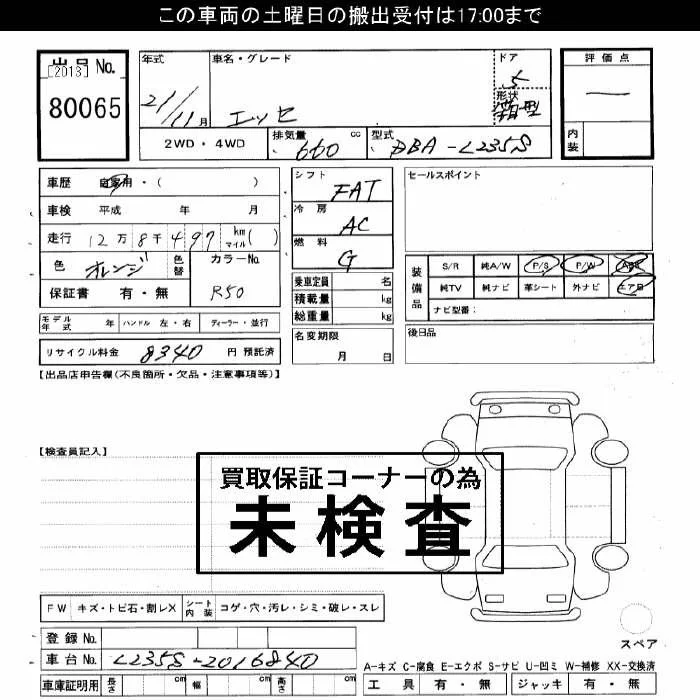 この車両の土曜日の搬出受付は17:00まで
出品 No.
[2013]
80065
年式 21/11月
車名・グレード エッセ
ドア 5
形状 箱型
評価点 —
内装
2WD・4WD
排気量 660 cc
型式 DBA-L235S
車歴 自家用・( )
車検 平成 年 月
走行 12万8千497 km マイル( )
色 オレンジ 色替 カラーNo. R50
保証書 有・無
モデル年式 年 ハンドル 左・右 ディーラー・並行
リサイクル料金 8340 円 預託済
シフト FAT
冷房 AC
燃料 G
乗車定員 名
積載量 kg
総重量 kg
名変期限 月 日
セールスポイント
装備品
S/R 純A/W P/S P/W ABS
純TV 純ナビ 革シート 外ナビ エアB
ナビ型番:
後日品
【出品店申告欄(不良箇所・欠品・注意事項等)】
【検査員記入】
買取保証コーナーの為
未検査
FW キズ・トビ石・割レX シート内装 コゲ・穴・汚レ・シミ・破レ・スレ
登録No.
車台No. L235S-2016840
車庫証明用 長さ cm 幅 cm 高さ cm
スペア
A-キズ C-腐食 E-エクボ S-サビ U-凹ミ W-補修 XX-交換済
工具 有・無 ジャッキ 有・無